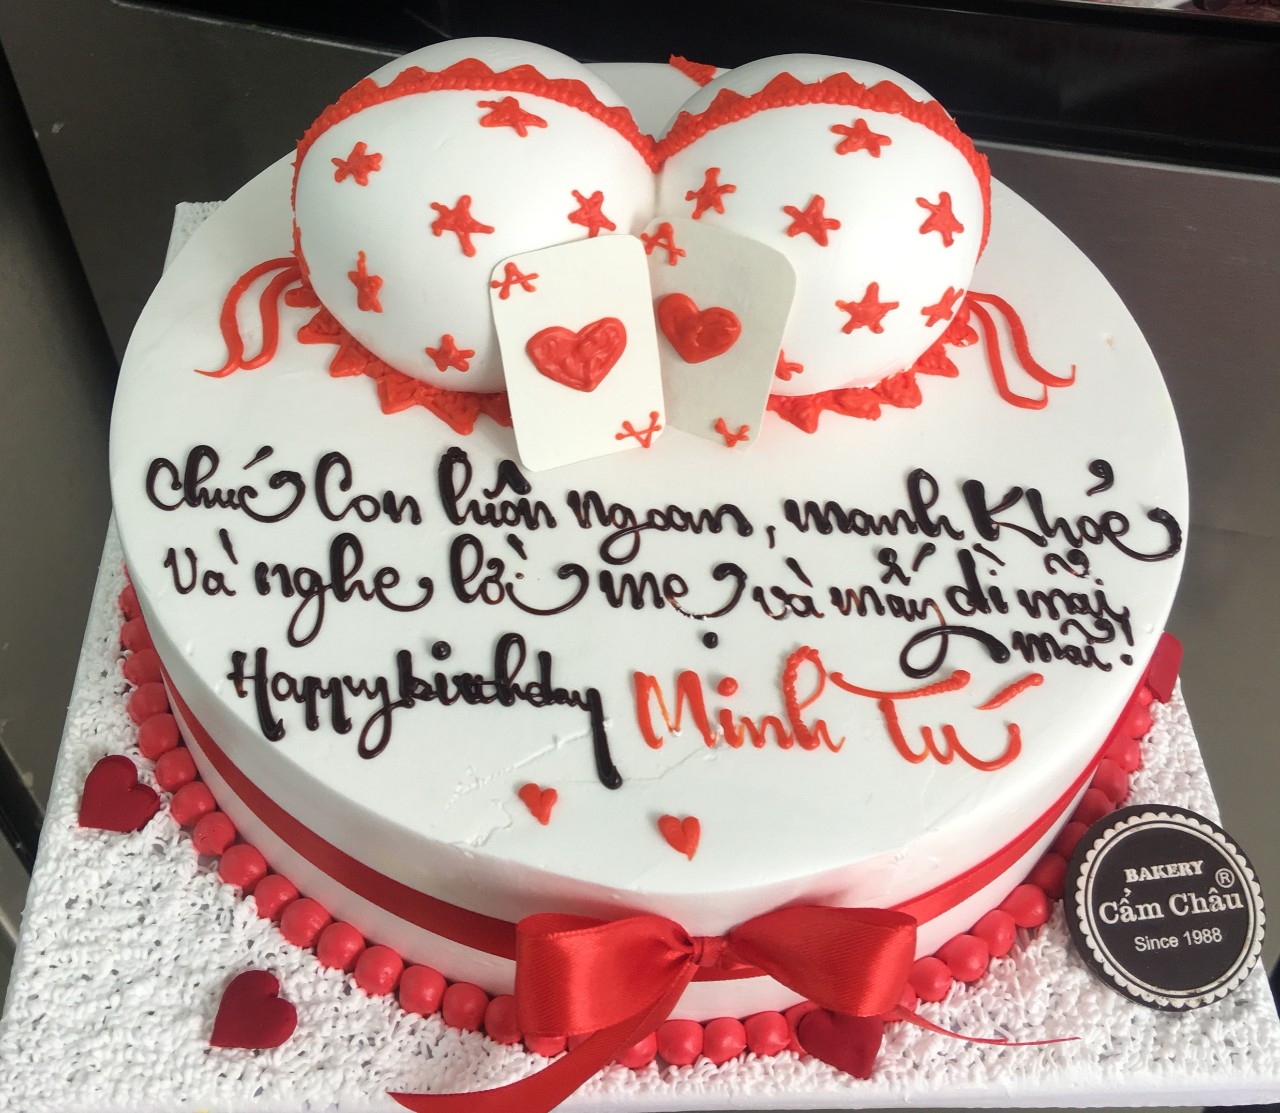 A
A
A
A
Chúc Con luôn ngoan, manh Khỏe
Và nghe lời mẹ và mấy dì mãi
mãi!
Happy birthday Minh Tú
BAKERY ®
Cẩm Châu
Since 1988